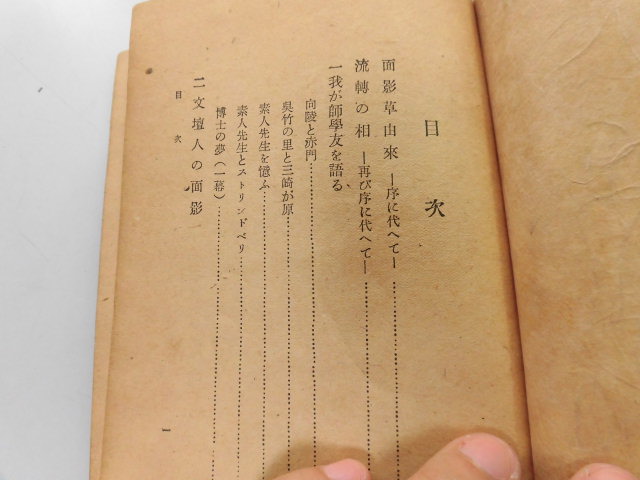 目次
面影草由來 ―序に代へて―
流轉の相 ―再び序に代へて―
一 我が師學友を語る
向陵と赤門
吳竹の里と三崎が原
素人先生を憶ふ
素人先生とストリンドベリ
博士の夢（一幕）
二 文壇人の面影
目次
一